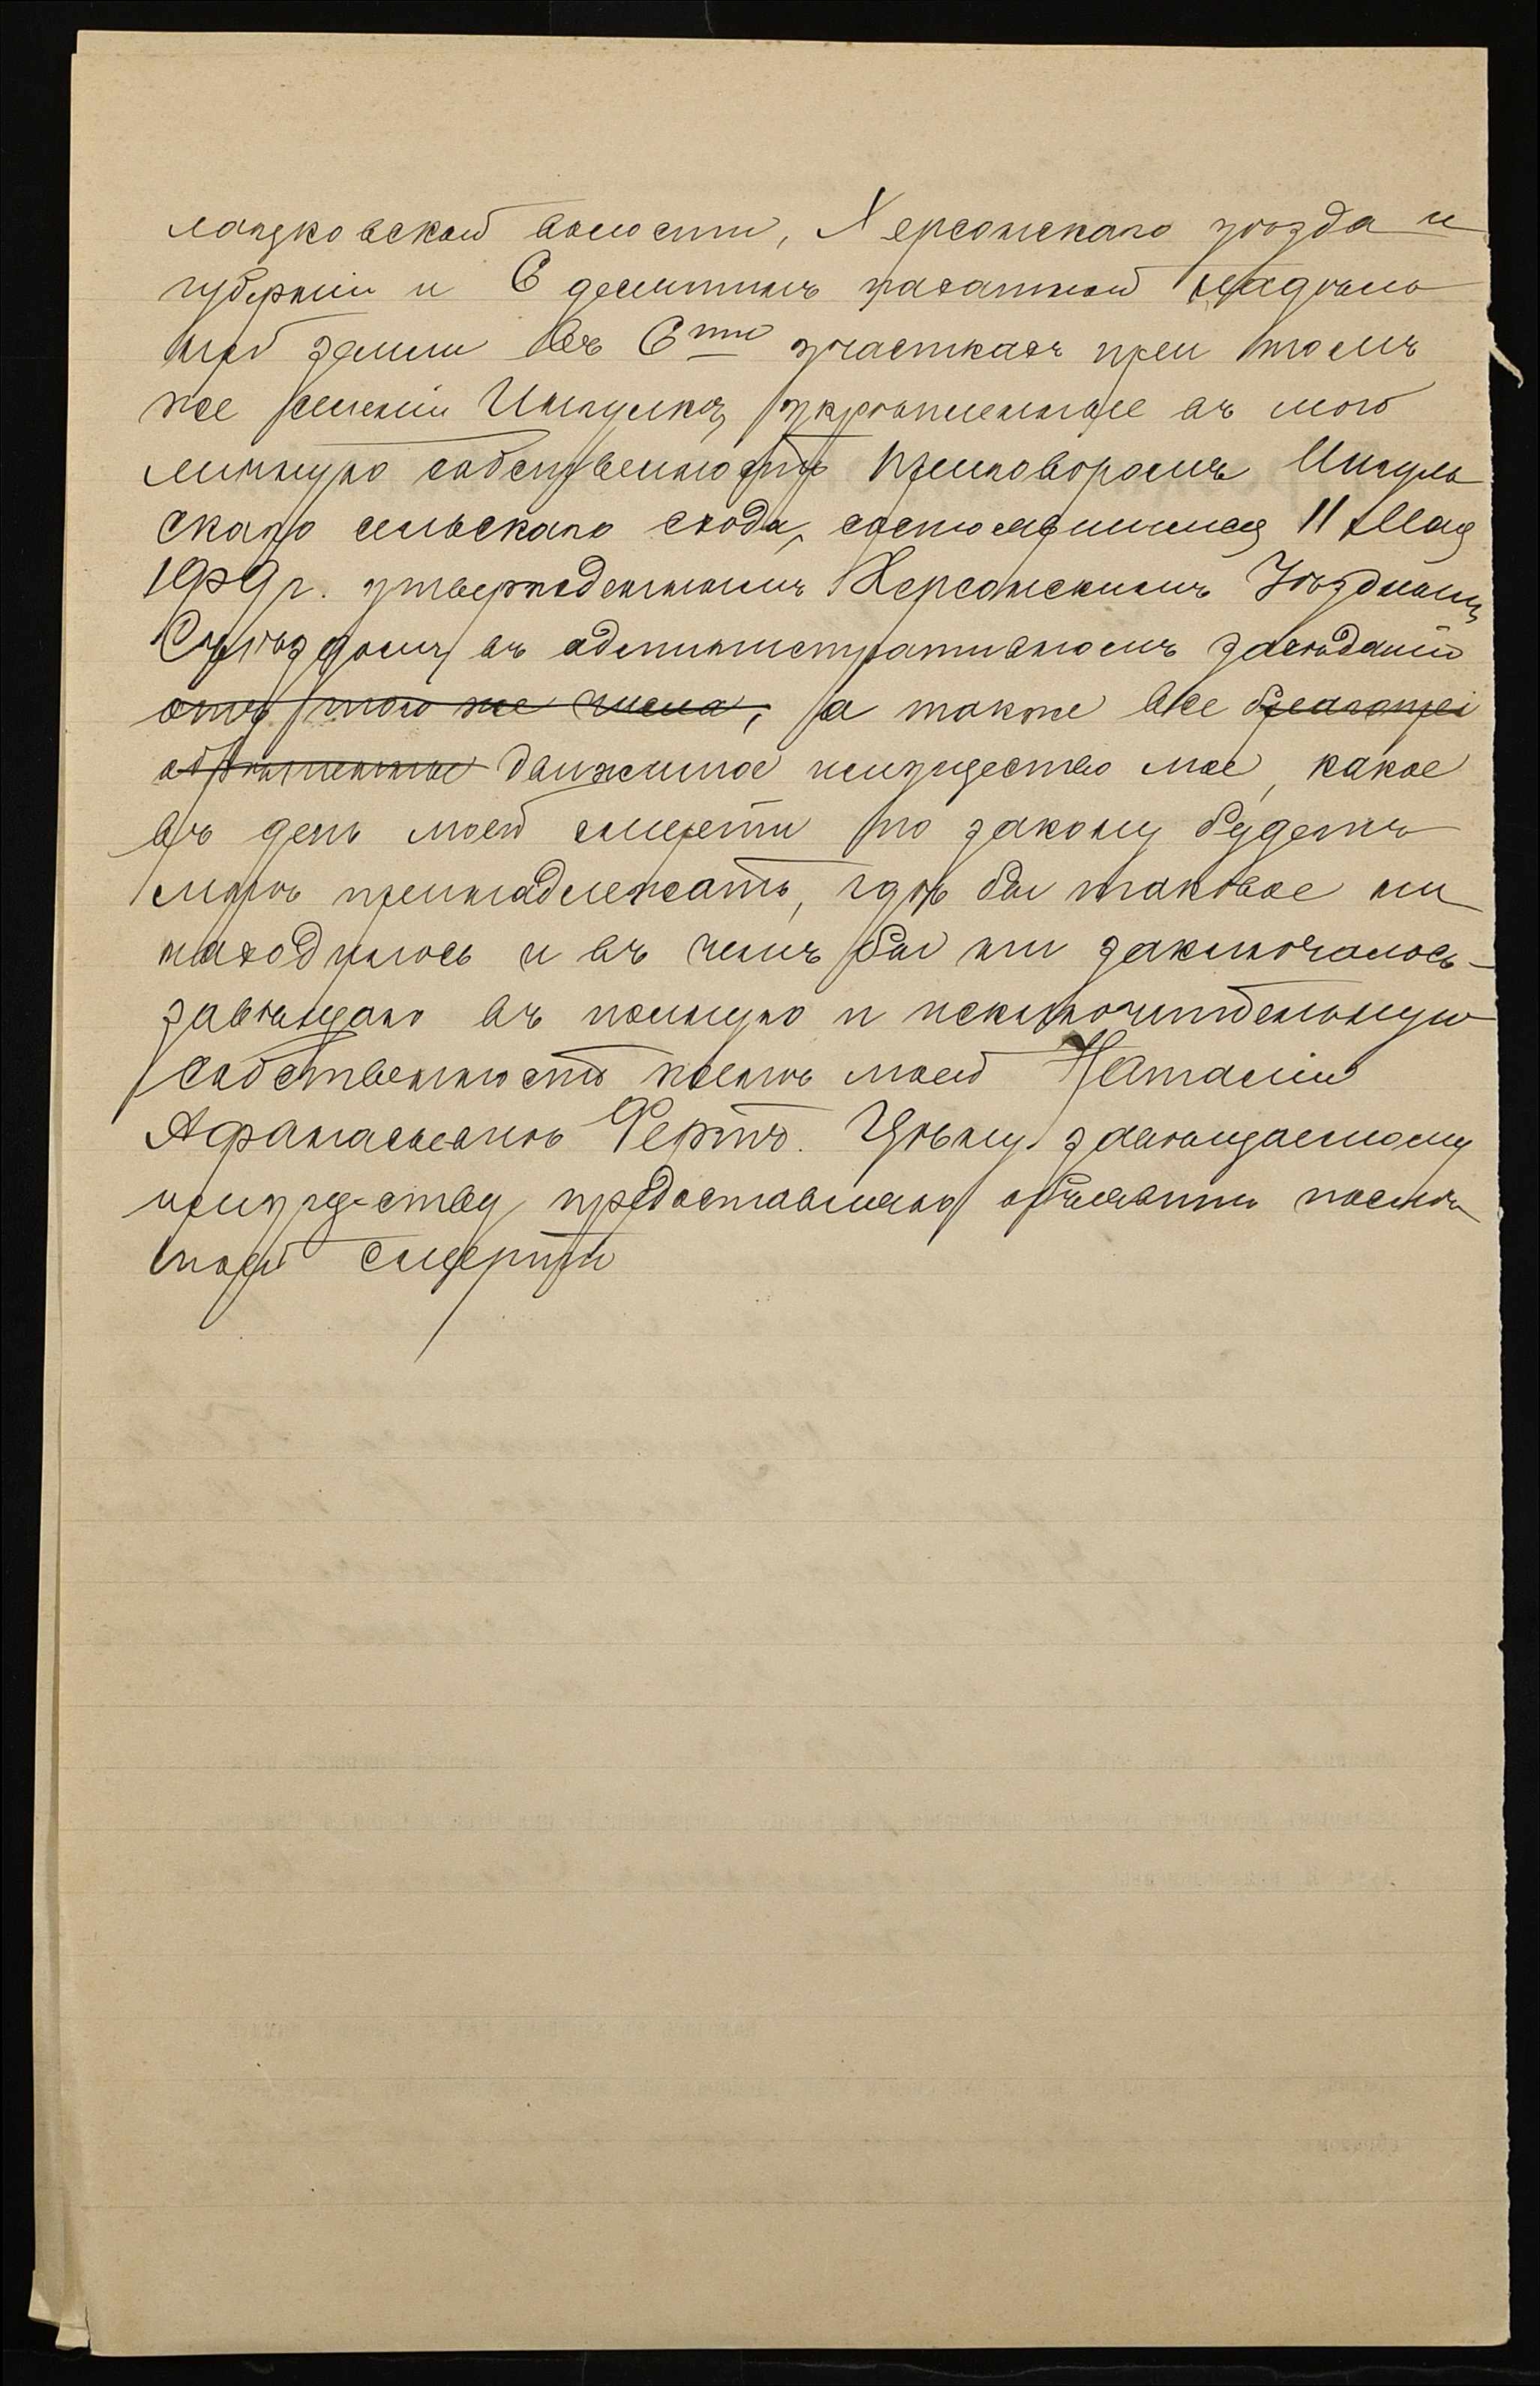 ландковской волости, Херсонскаго уѣзда и
губерніи и 6 десятинъ пахатной надѣль
ной земли въ 6ти участкахъ при томъ
же селеніи Ингулкѣ, укрѣпленные въ мою
личную собственность приговоромъ Ингуль
скаго сельскаго схода, состоявшимся 11 Мая
1909 г. утвержденнымъ Херсонскимъ Уѣзднымъ
Съѣздомъ въ административномъ засѣданіи
отъ того же числа, а также все
движимое имущество мое, какое
въ день моей смерти по закону будетъ
мнѣ принадлежать, гдѣ бы таковое ни
находилось и въ чемъ бы ни заключалось –
завѣщаю въ полную и исключительную
собственность женѣ моей Наталіи
Афанасьевнѣ Фертъ. Цѣну завѣщаемому
имуществу предоставляю объявить послѣ
моей смерти